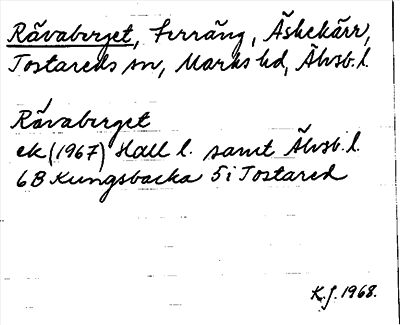 Rävaberget, Furräng, Äskekärr,
Tostareds sn, Marks hd, Älvsb. l.
Rävaberget
ek (1967) Hall l. samt Älvsb. l.
6B Kungsbacka 5i Tostared
K.J. 1968.